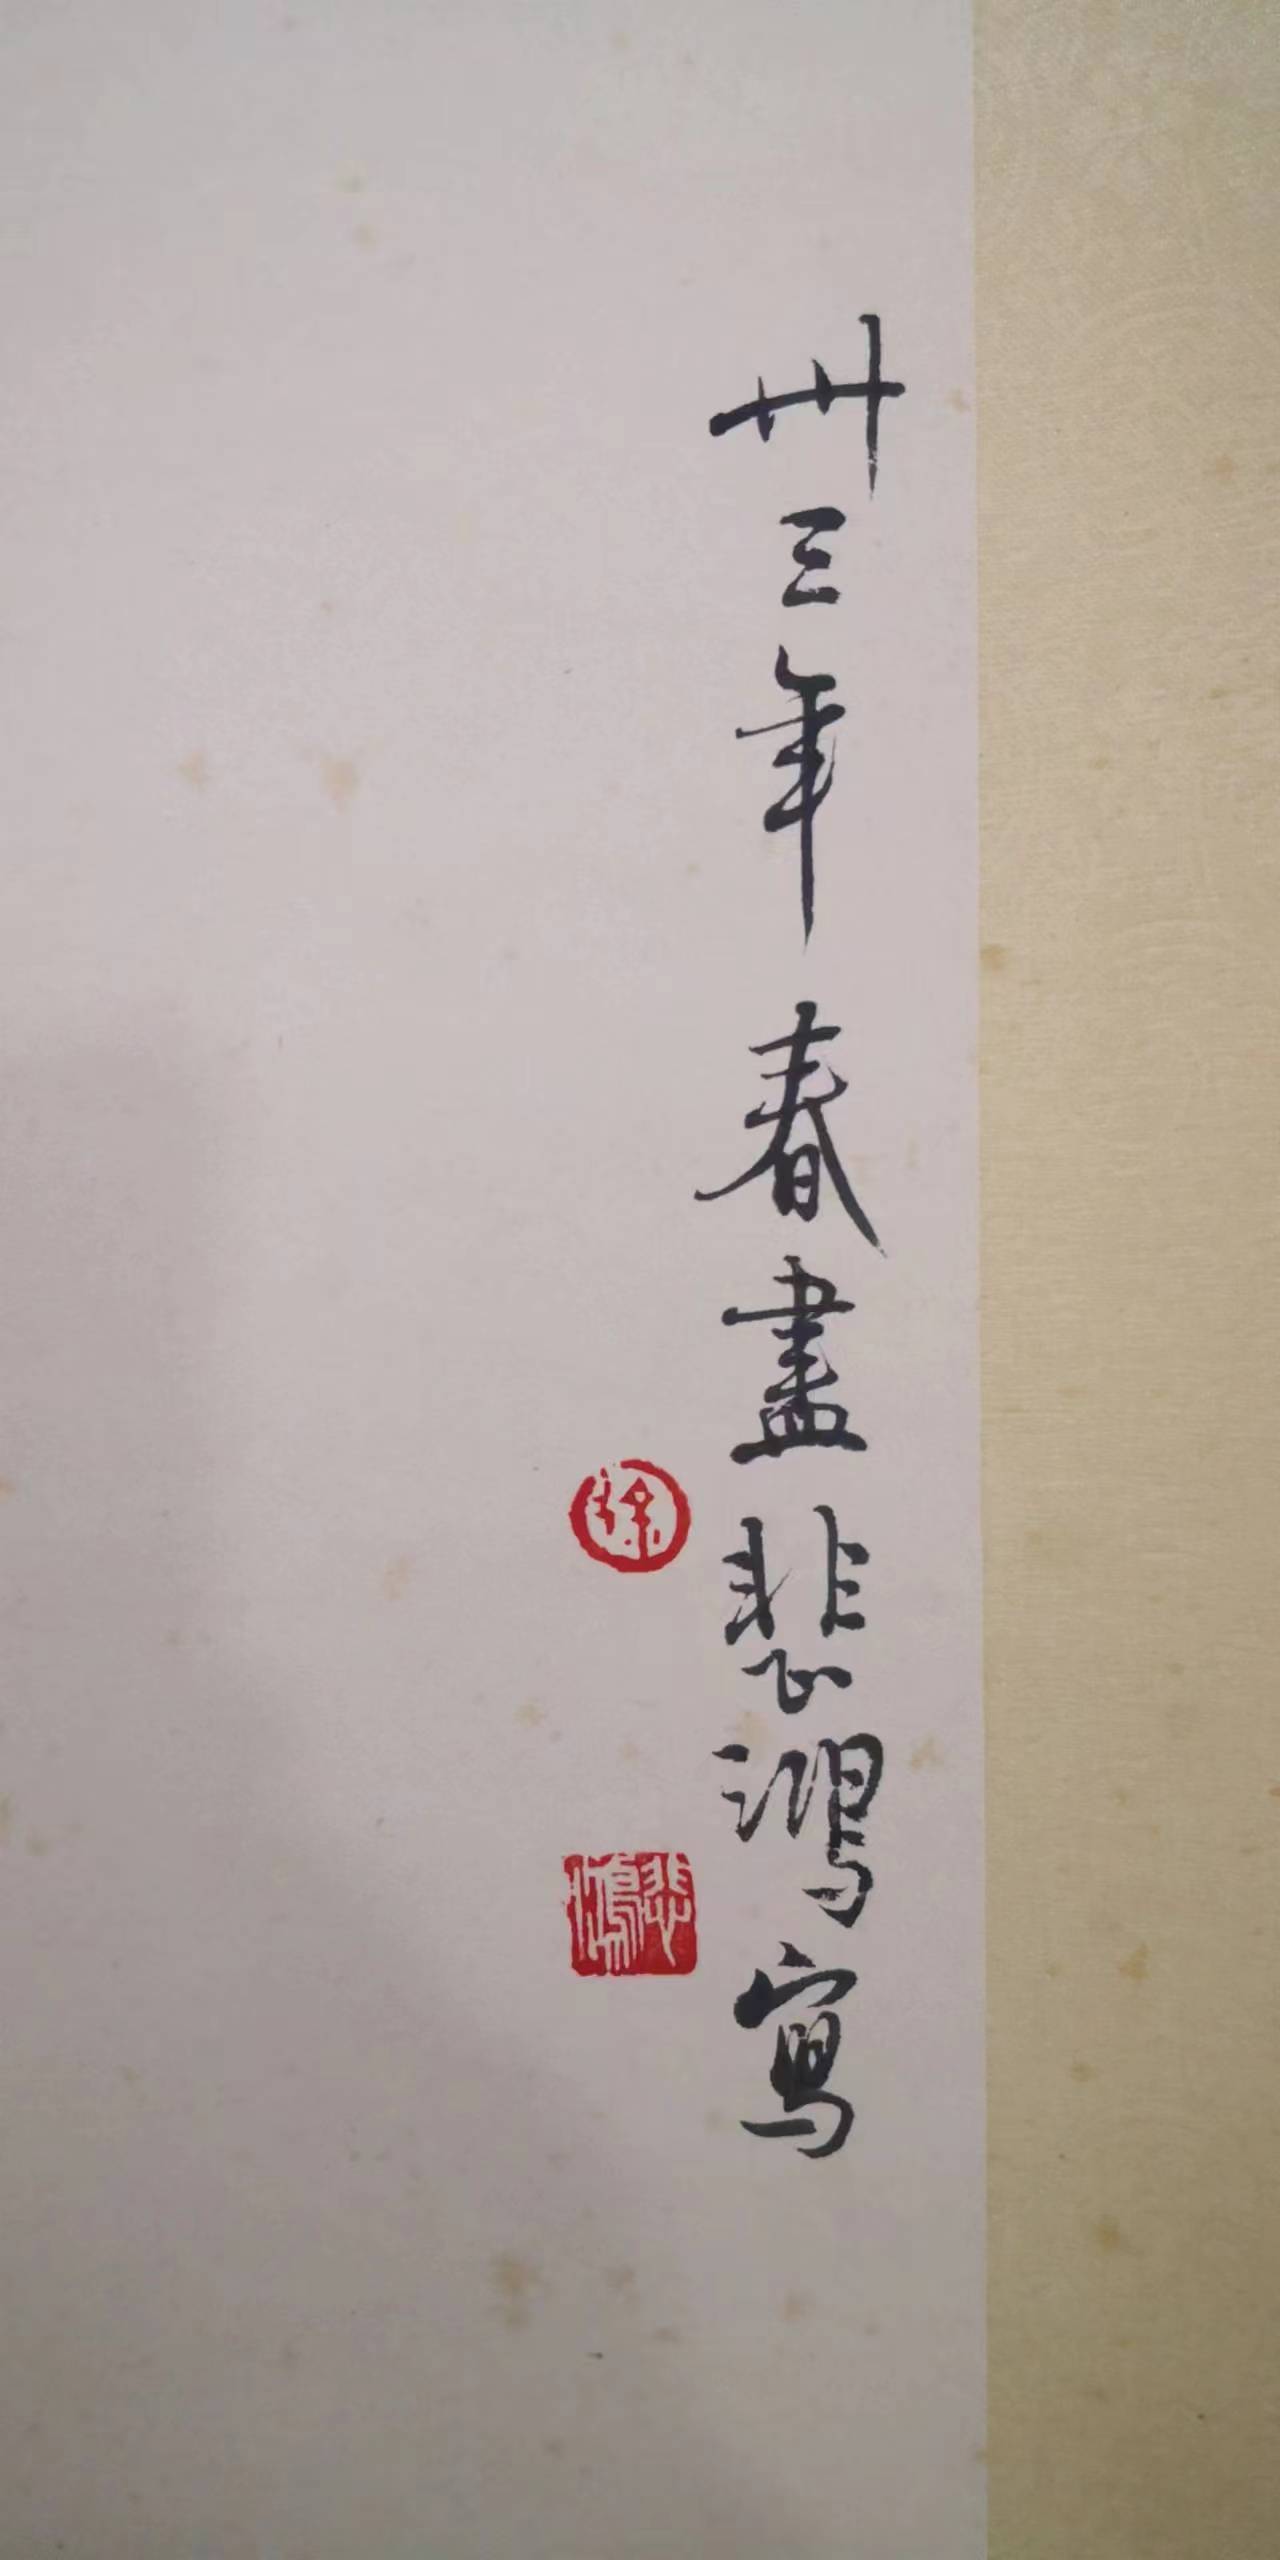 卅三年春盡悲鴻寫
徐
悲鴻